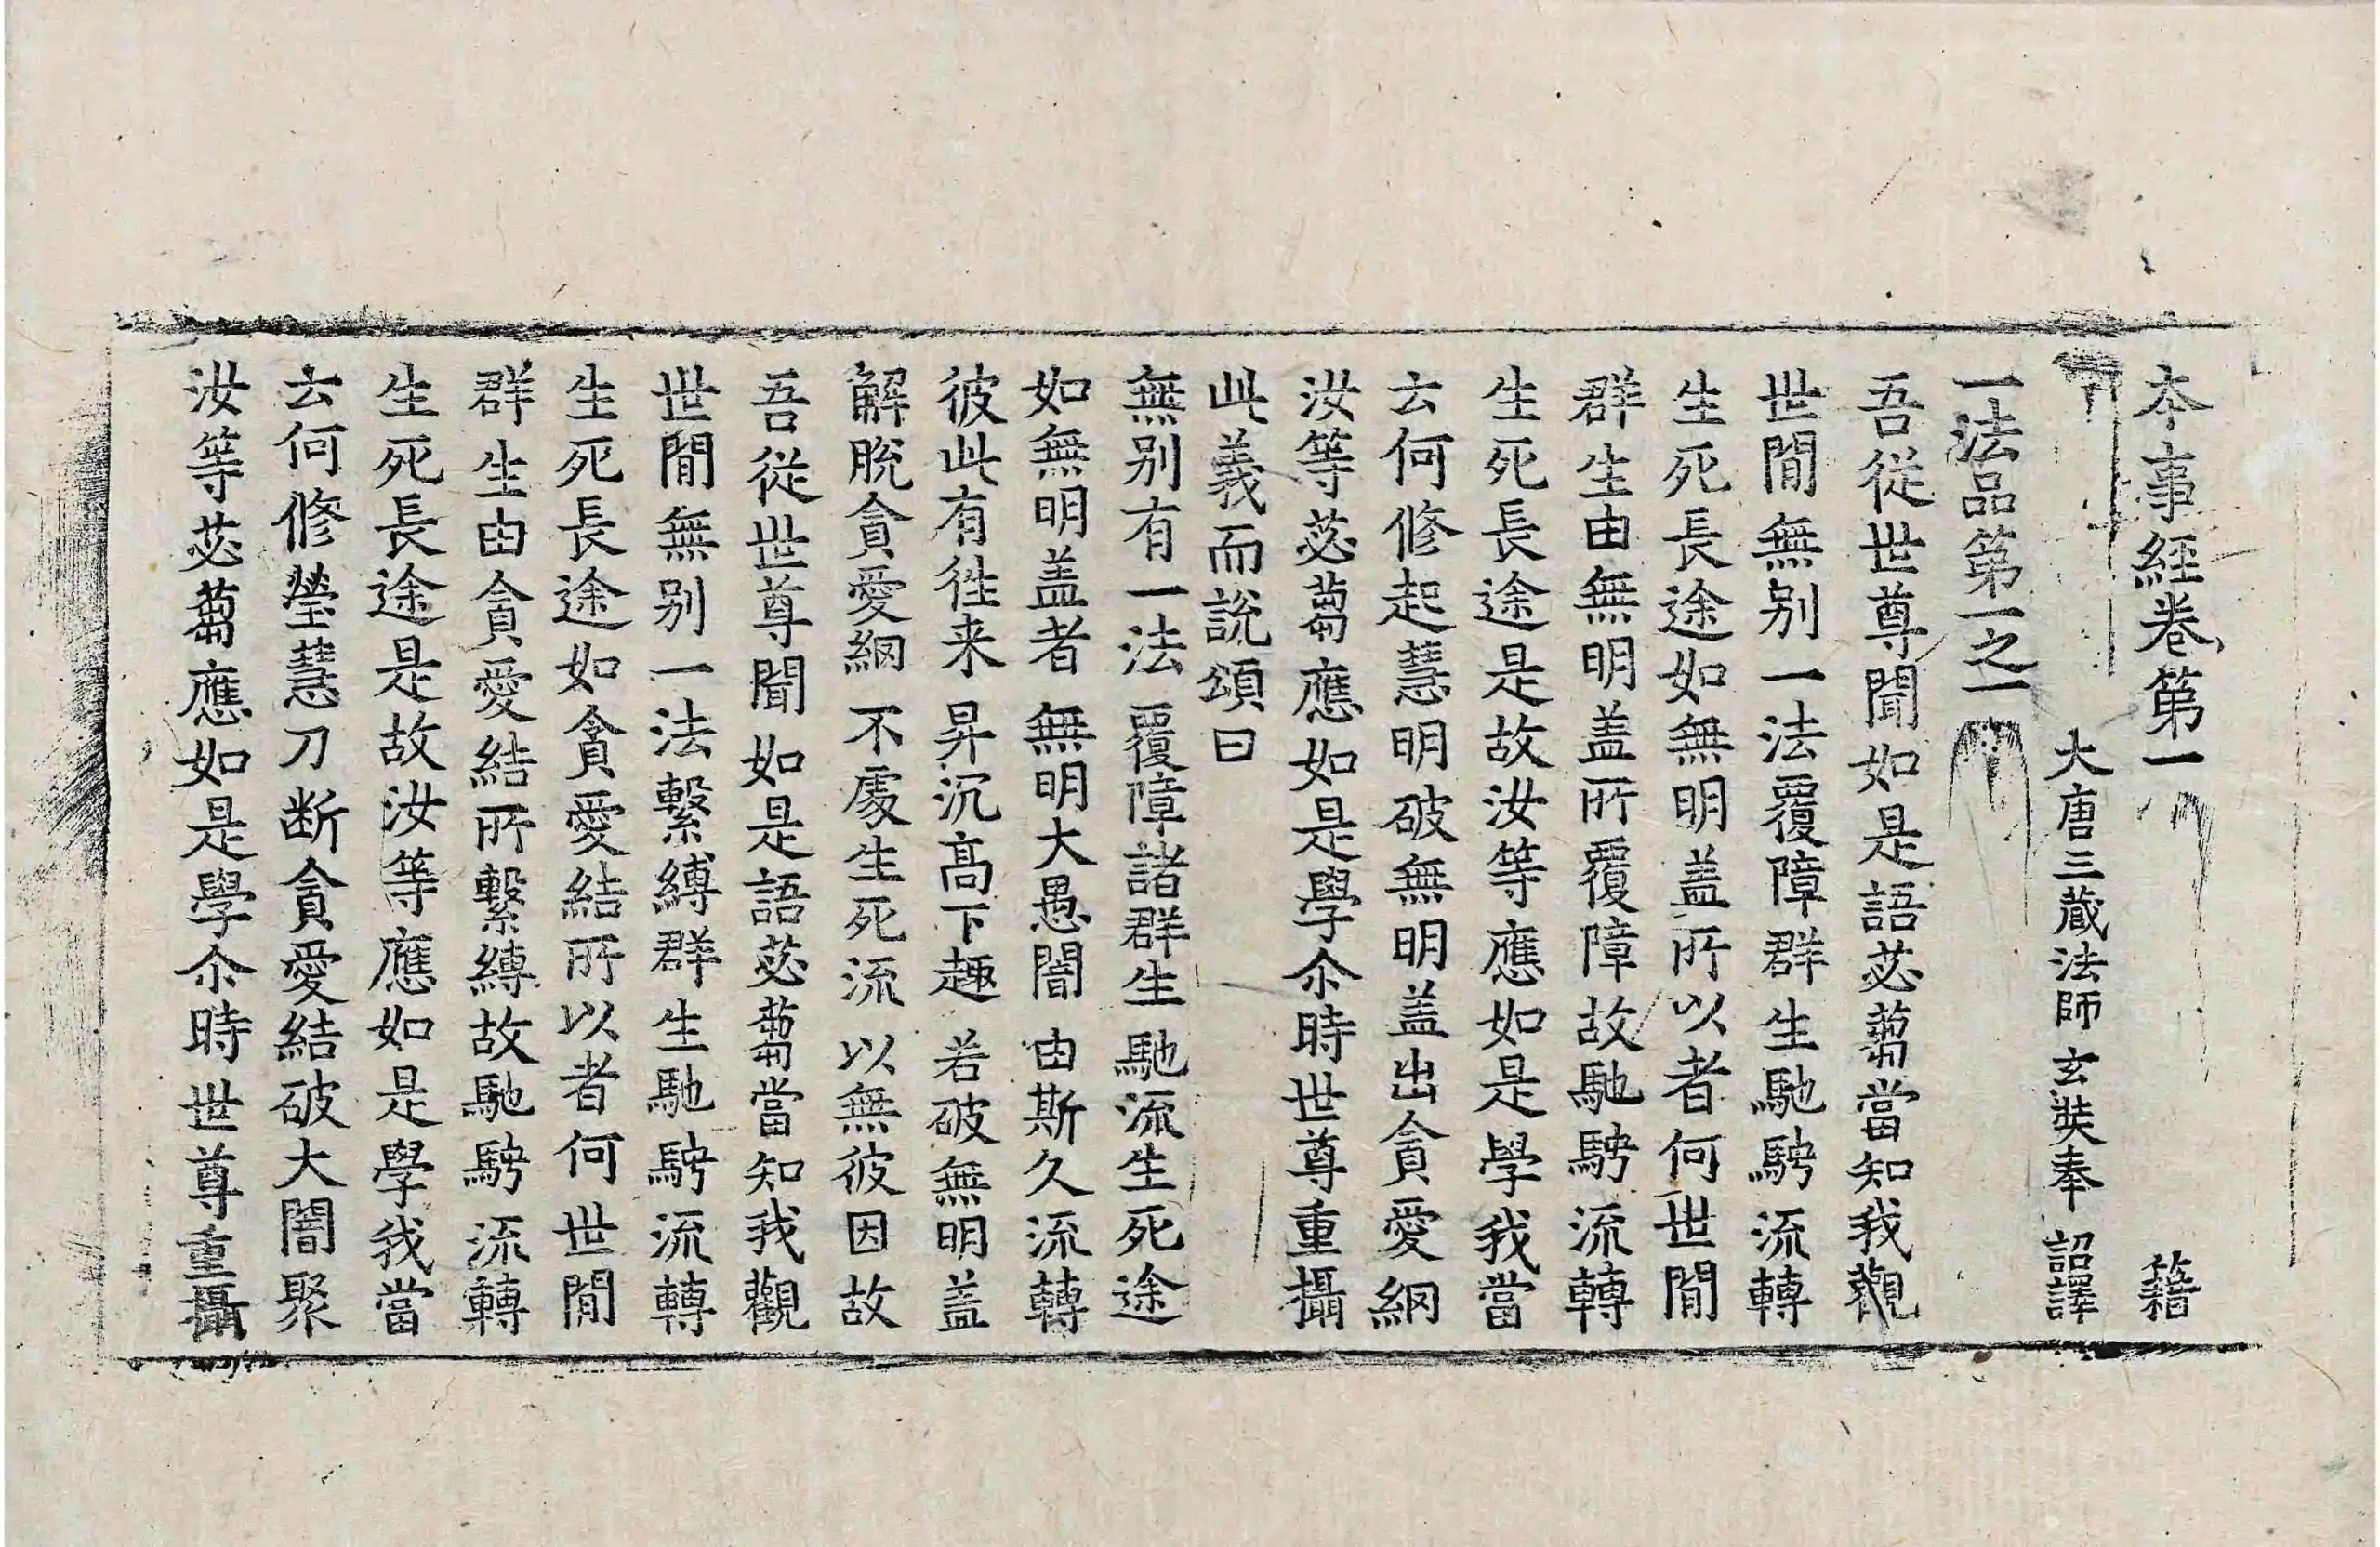 本事經卷第一 籍
大唐三藏法師 玄奘奉 詔譯
一法品第一之一
吾從世尊聞如是語苾蒭當知我觀
世間無别一法覆障群生馳騁流轉
生死長途如無明盖所以者何世間
群生由無明盖所覆障故馳騁流轉
生死長途是故汝等應如是學我當
云何修起慧明破無明盖出貪愛網
汝等苾蒭應如是學尒時世尊重攝
此義而說頌曰
無别有一法 覆障諸群生 馳流生死途
如無明盖者 無明大愚闇 由斯久流轉
彼此有徃来 昇沉髙下趣 若破無明盖
解脫貪愛網 不處生死流 以無彼因故
吾從世尊聞如是語苾蒭當知我觀
世間無别一法繫縛群生馳騁流轉
生死長途如貪愛結所以者何世間
群生由貪愛結所繫縛故馳騁流轉
生死長途是故汝等應如是學我當
云何修瑩慧刀断貪愛結破大闇聚
汝等苾蒭應如是學尒時世尊重攝